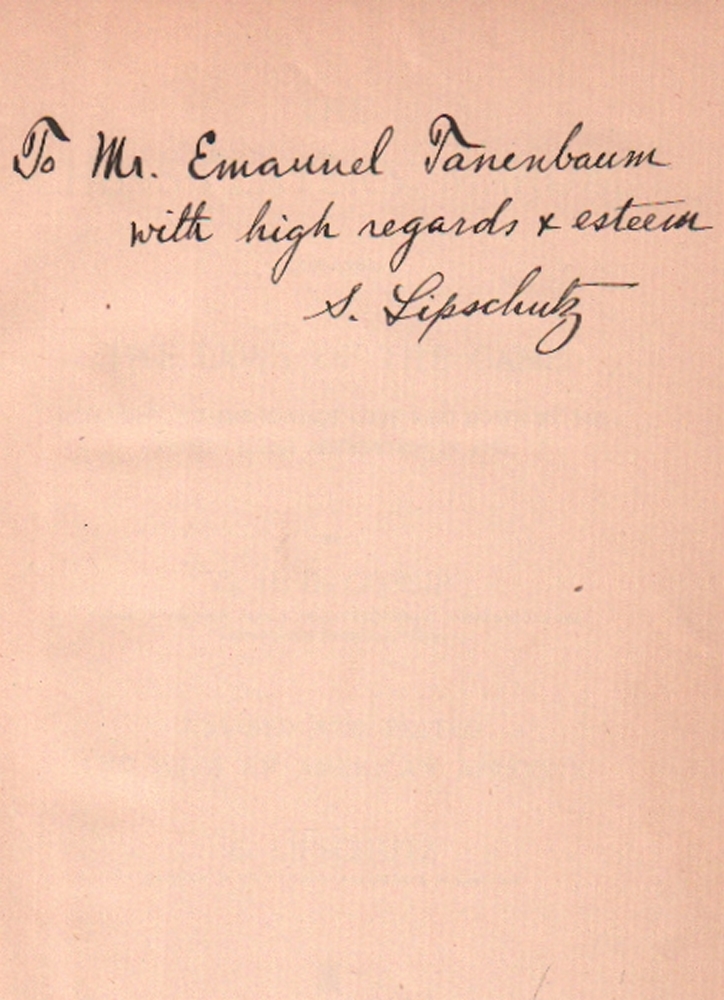 To Mr. Emanuel Tanenbaum
with high regards & esteem
S. Lipschutz